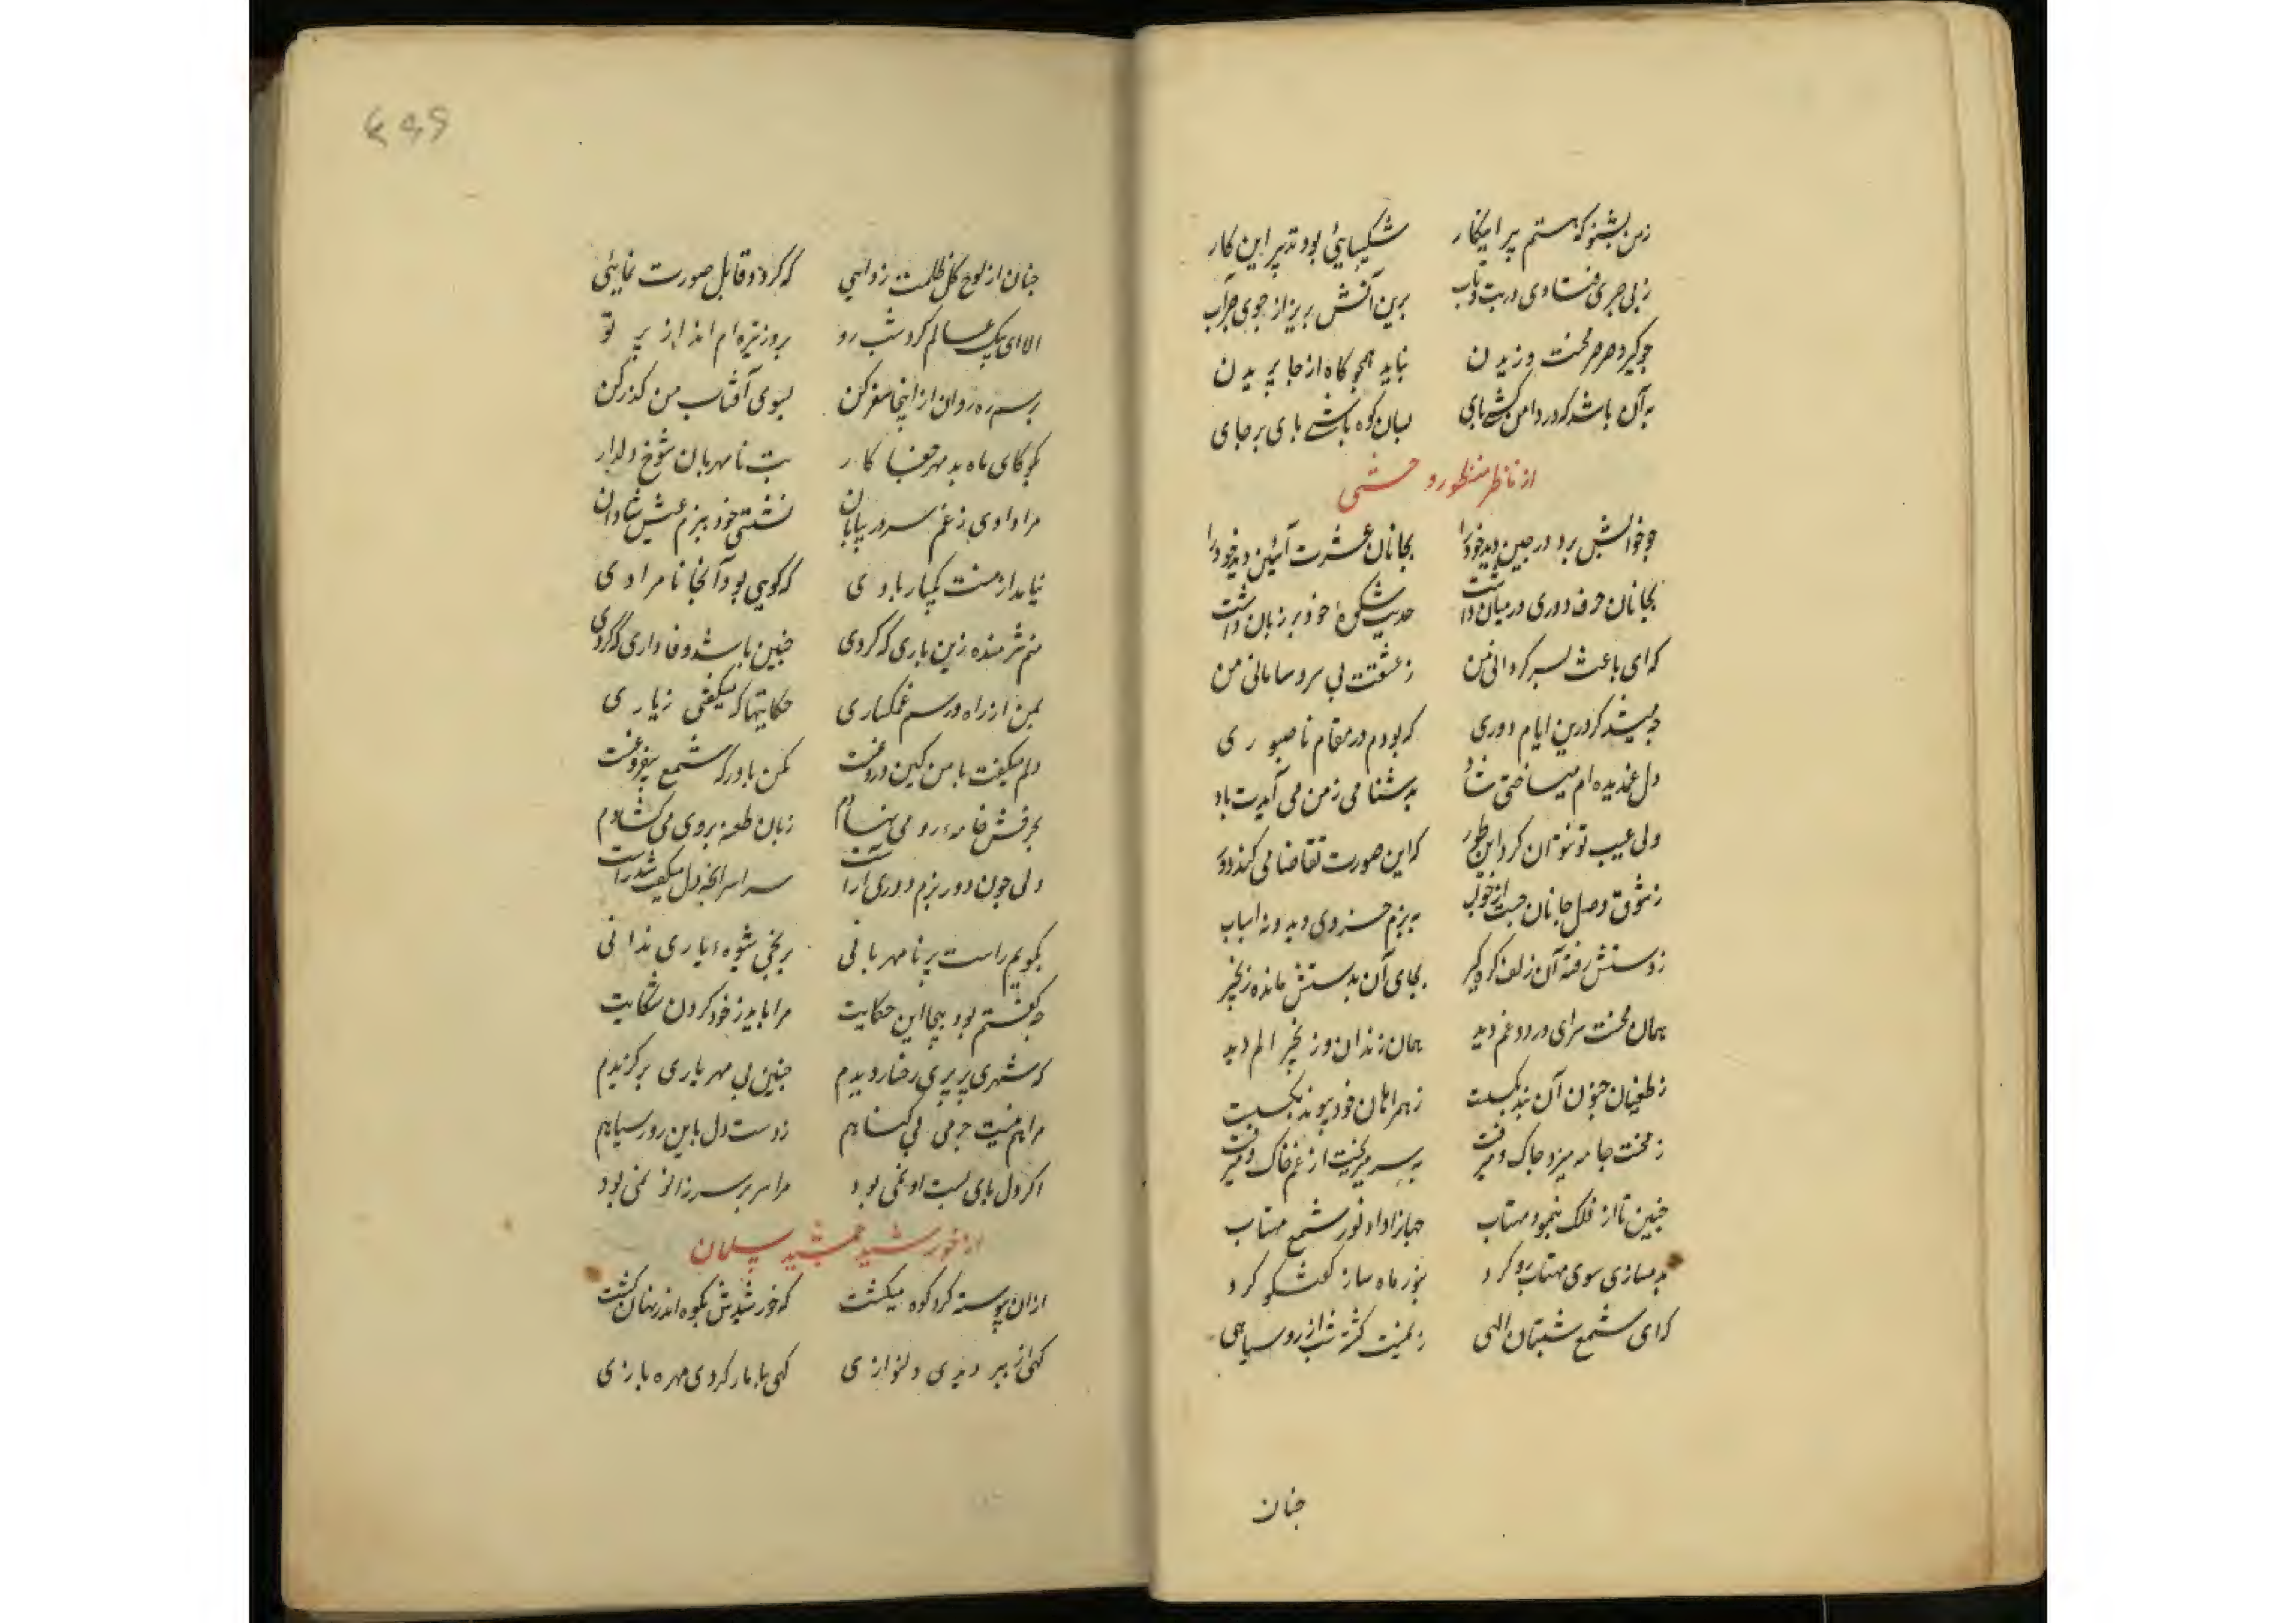 زمن بشنو که هستم پیر اینکار شکیبایئی بود تدبیر این کار
ز بی صبری فتادی در تب و تاب برین آتش بریز از جوی صبر آب
چو گیرد صرصر محنت وزیدن نباید همچو کاه از جا پریدن
به آن باشد که در دامن کشی پای بسان کوه باشی پای بر جای
از ناظر منظور وحشی
چو خوابش برد در چین دید خود را بجانان عشرت آئین دید خود را
بجانان حرف دوری در میان داشت حدیث شکوهٔ خود بر زبان داشت
که ای باعث بسر کردانی من ز عشقت بی سر و سامانی من
چه میشد کر درین ایام دوری که بودم در مقام ناصبوری
دل غمدیده ام میساختی شاد بدشنامی ز من می آمدت یاد
ولی عیب تو نتوان کرد این طور که این صورت تقاضا می کند دور
ز شوق وصل جانان جست از خواب به بزم خسروی دید ونه اسباب
ز دستش رفته آن زلف کره کیر بجای آن بدستش مانده زنجیر
همان محنت سرای درد و غم دید همان زندان و زنجیر الم دید
ز طغیان جنون آن بند بکست ز همراهان خود پیوند بکست
ز محنت جامه میزد چاک و میرفت به سر میریخت از غم خاک و میرفت
چنین تا از فلک بنمود مهتاب جهانرا داد نور شمع مهتاب
به سازی سوی مهتاب رو کرد بنور ماه ساز کفتکو کرد
که ای شمع شبستان الهی ز یمنت کشته شب از رو سیاهی
چنان
چنان از لوح کل ظلمت زدایی که کردد قابل صورت نمایئی
الا ای پیک عالم کرد شب رو بروز تیره ام انداز پرتو
برسم ره روان از اینجا سفر کن بسوی آفتاب من کذر کن
بکو کای ماه بد مهر جفا کار بت نامهربان شوخ دلدار
مرا دادی ز غم سر در بیابان نشستی خود ببزم عیش شادان
نیامد از منت یکبار یادی که کویی بود آنجا نامرادی
منم شرمنده زین یاری که کردی چنین باشد وفاداری که کردی
بمن از راه و رسم غمکساری حکایتها که میکفتی ز یاری
دلم میکفت با من کین دروغست مکن باور که شمع بیفروغست
بحرفش خامه رو می نهادم زبان طعنه بروی می کشادم
ولی چون دور بزم دوری آراست سراسر آنچه دل میکفت شد راست
بکویم راست پر نامهربانی بریجی شیوه یاری ندانی
چه کفتم بود بیجا این حکایت مرا باید ز خود کردن شکایت
که شهری پر پری رخسار دیدم چنین بی مهر یاری برکزیدم
مرا هم نیست جرمی بی کناهم ز دست دل باین روز سیاهم
اکر دل پای بست او نمی بود مرا سر بر سر زانو نمی بود
از خورشید جمشید سلمان
از آن پیوسته کرد کوه میکشت که خورشیدش بکوه اندر نهان کشت
کهی از ببر دیدی دلنوازی کهی با مار کردی مهره بازی